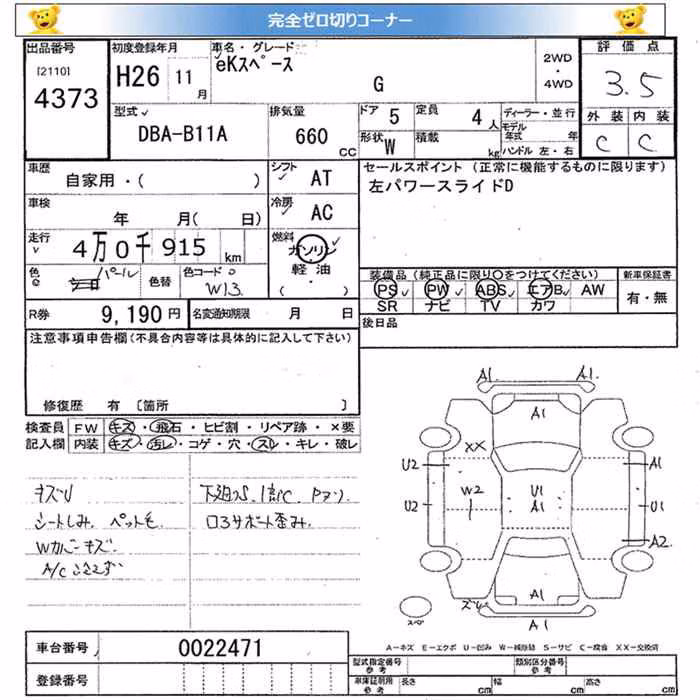 完全ゼロ切りコーナー
出品番号 初度登録年月 車名・グレード 評価点
[2110] H26 11月 eKスペース G 2WD・4WD 3.5
4373
型式 DBA-B11A 排気量 660 cc ドア 5 定員 4人 ディーラー・並行 外装 内装
形状 W 積載 kg モデル年式 年 C C
ハンドル 左・右
車歴 自家用・( ) シフト AT セールスポイント (正常に機能するものに限ります)
左パワースライドD
車検 年 月( 日) 冷房 AC
走行 4万0千915 km 燃料 ガソリン
軽油
・( )
色 パール 色替 色コード W13 装備品 (純正品に限り〇をつけてください) 新車保証書
PS PW ABS エアB AW 有・無
SR ナビ TV カワ
R券 9,190円 名変通知期限 月 日 後日品
注意事項申告欄(不具合内容等は具体的に記入して下さい)
修復歴 有 [箇所 ]
検査員 FW キズ・飛石・ヒビ割・リペア跡・×要
記入欄 内装 キズ・汚レ・コゲ・穴・スレ・キレ・破レ
キズU
シートしみ. ペット毛
Wカバーキズ.
下廻りS.
ロSサポート歪み.
A1 A1
A1
XX
U2 A1
W2 U1
A1
U2 U1
A2
A1
A1
スペ
A-キズ E-エクボ U-凹み W-補修跡 S-サビ C-腐食 XX-交換済
車台番号 0022471
登録番号
型式指定番号 参考 類別区分番号 参考
車庫証明用 参考 長さ cm 幅 cm 高さ cm